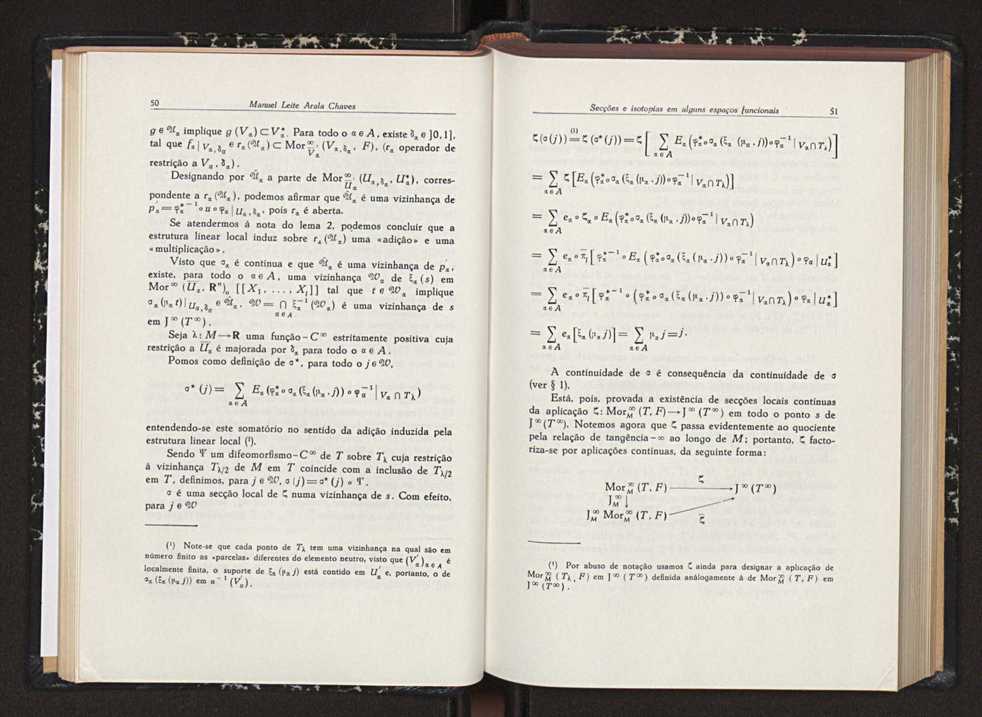 50 Manuel Leite Arala Chaves
g ∈ 𝔘ₐ implique g (Vₐ) ⊂ Vₐ*. Para todo o α ∈ A, existe δₐ ∈ ]0,1],
tal que fₐ | V_{α,δα} ∈ rₐ (𝔘ₐ) ⊂ Mor^∞_{V'α} (V_{α,δα}, F), (rₐ operador de
restrição a V_{α,δα}).
Designando por 𝔘̇ₐ a parte de Mor^∞_{U'α} (U_{α,δα}, U*ₐ), corres-
pondente a rₐ (𝔘ₐ), podemos afirmar que 𝔘̇ₐ é uma vizinhança de
p'ₐ = φₐ*⁻¹ ∘ u ∘ φₐ | U_{α,δα}, pois rₐ é aberta.
Se atendermos à nota do lema 2, podemos concluir que a
estrutura linear local induz sobre rₐ (𝔘ₐ) uma «adição» e uma
«multiplicação».
Visto que σₐ é contínua e que 𝔘̇ₐ é uma vizinhança de p'ₐ,
existe, para todo o α ∈ A, uma vizinhança 𝔚ₐ de ξₐ (s) em
Mor^∞ (U'ₐ, Rⁿ)₀ [[X₁, . . . , X_l]] tal que t ∈ 𝔚ₐ implique
σₐ (μₐ t) | U_{α,δα} ∈ 𝔘̇ₐ. 𝔚 = ∩_{α∈A} ξₐ⁻¹ (𝔚ₐ) é uma vizinhança de s
em J^∞ (T^∞).
Seja λ: M → R uma função-C^∞ estritamente positiva cuja
restrição a U'ₐ é majorada por δₐ para todo o α ∈ A.
Pomos como definição de σ*, para todo o j ∈ 𝔚,
σ* (j) = ∑_{α∈A} Eₐ (φₐ* ∘ σₐ (ξₐ (μₐ . j)) ∘ φₐ⁻¹ | Vₐ ∩ T_λ)
entendendo-se este somatório no sentido da adição induzida pela
estrutura linear local (¹).
Sendo Ψ um difeomorfismo-C^∞ de T sobre T_λ cuja restrição
à vizinhança T_{λ/2} de M em T coincide com a inclusão de T_{λ/2}
em T, definimos, para j ∈ 𝔚, σ (j) = σ* (j) ∘ Ψ.
σ é uma secção local de ζ numa vizinhança de s. Com efeito,
para j ∈ 𝔚
(¹) Note-se que cada ponto de T_λ tem uma vizinhança na qual são em
número finito as «parcelas» diferentes do elemento neutro, visto que (V'ₐ)_{α∈A} é
localmente finita, o suporte de ξₐ (μₐ j) está contido em U'ₐ e, portanto, o de
σₐ (ξₐ (μₐ j)) em α⁻¹ (V'ₐ).
Secções e isotopias em alguns espaços funcionais 51
ζ (σ (j)) =⁽¹⁾ ζ (σ* (j)) = ζ [ ∑_{α∈A} Eₐ (φₐ* ∘ σₐ (ξₐ (μₐ . j)) ∘ φₐ⁻¹ | Vₐ ∩ T_λ) ]
= ∑_{α∈A} ζ [Eₐ (φₐ* ∘ σₐ (ξₐ (μₐ . j)) ∘ φₐ⁻¹ | Vₐ ∩ T_λ)]
= ∑_{α∈A} eₐ ∘ ζₐ ∘ Eₐ (φₐ* ∘ σₐ (ξₐ (μₐ . j)) ∘ φₐ⁻¹ | Vₐ ∩ T_λ)
= ∑_{α∈A} eₐ ∘ π̄_l [ φₐ*⁻¹ ∘ Eₐ (φₐ* ∘ σₐ (ξₐ (μₐ . j)) ∘ φₐ⁻¹ | Vₐ ∩ T_λ) ∘ φₐ | U*ₐ ]
= ∑_{α∈A} eₐ ∘ π̄_l [ φₐ*⁻¹ ∘ (φₐ* ∘ σₐ (ξₐ (μₐ . j)) ∘ φₐ⁻¹ | Vₐ ∩ T_λ) ∘ φₐ | U*ₐ ]
= ∑_{α∈A} eₐ [ξₐ (μₐ j)] = ∑_{α∈A} μₐ j = j.
A continuidade de σ é consequência da continuidade de σ
(ver § 1).
Está, pois, provada a existência de secções locais contínuas
da aplicação ζ: Mor^∞_M (T, F) → J^∞ (T^∞) em todo o ponto s de
J^∞ (T^∞). Notemos agora que ζ passa evidentemente ao quociente
pela relação de tangência-∞ ao longo de M; portanto, ζ facto-
riza-se por aplicações contínuas, da seguinte forma:
Mor^∞_M (T, F) ζ → J^∞ (T^∞)
J^∞_M ↓
J^∞_M Mor^∞_M (T, F) ζ̄
(¹) Por abuso de notação usamos ζ ainda para designar a aplicação de
Mor^∞_M (T_λ, F) em J^∞ (T^∞) definida anàlogamente à de Mor^∞_M (T, F) em
J^∞ (T^∞).